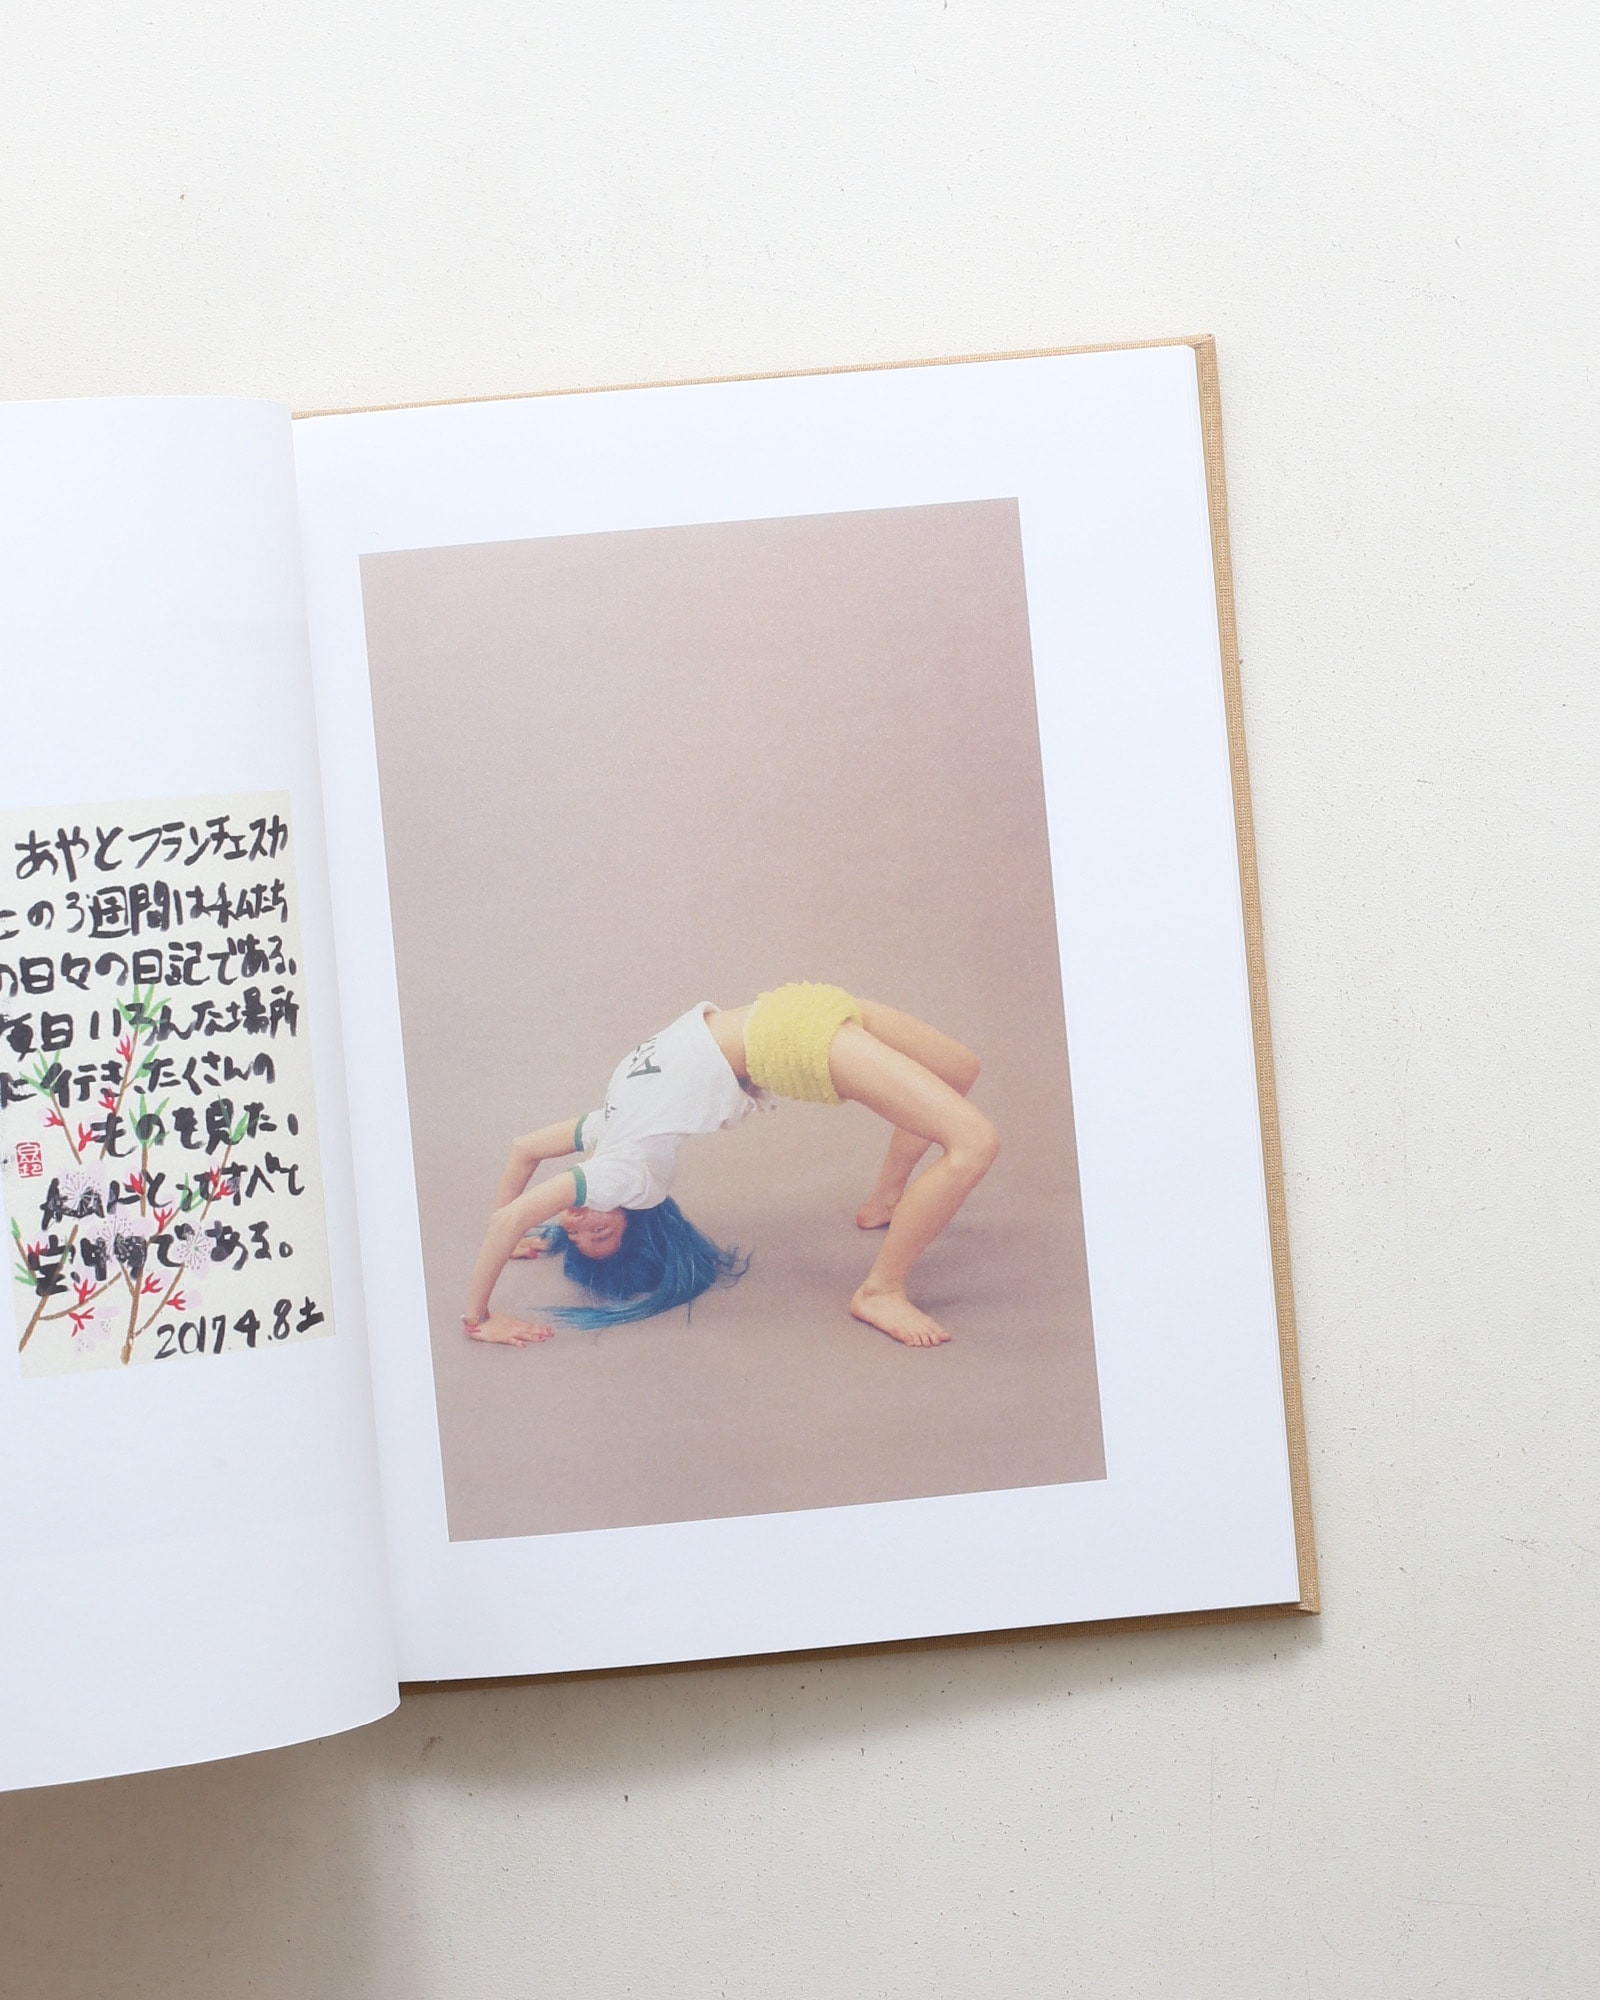 あやとフランチェスカ
この3週間は私たち
の日々の日記である。
毎日いろんな場所
に行き、たくさんの
ものを見た。
私たちにとってすべて
宝物である。
2017.4.8土